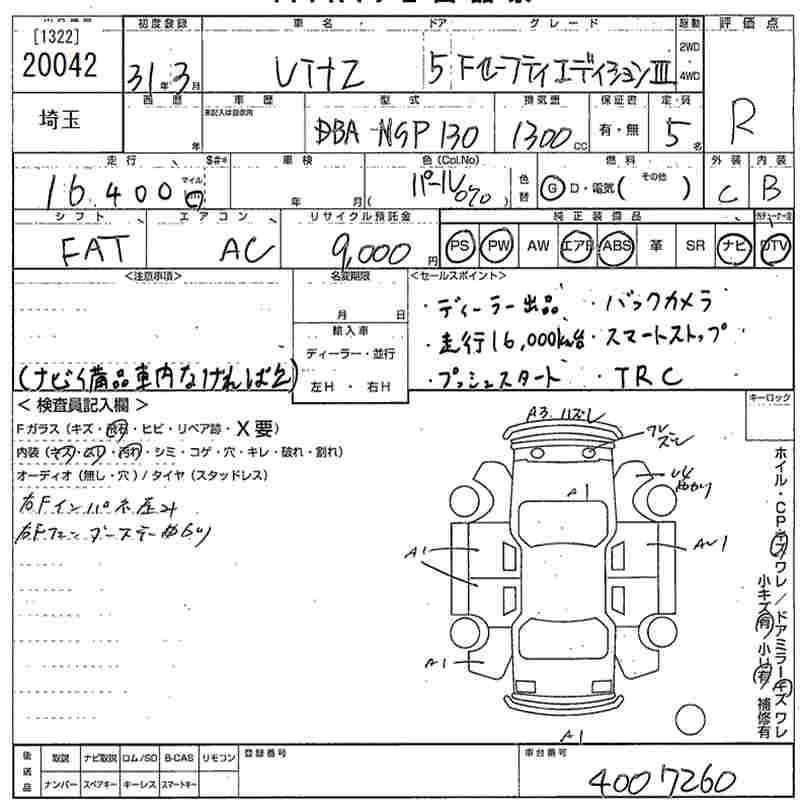 [1322]
20042
初度登録
31年3月
車名
ﾋﾞｯﾂ
ドア
5
グレード
Fセーフティエディション Ⅲ
駆動
2WD
4WD
評価点
R
埼玉
西暦
年
車歴
未記入は自家用
型式
DBA-NSP130
排気量
1300CC
保証書
有・無
定員
5名
走行
16,400
マイル
車検
年 月
色(Col.No)
パール(070)
色替
燃料
G D・電気( その他 )
外装
C
内装
B
シフト
FAT
エアコン
AC
リサイクル預託金
9,000円
純正装備品
PS PW AW エアB ABS 革 SR ナビ DTV
<注意事項>
(ナビイ備品車内なければ
名変期限
月 日
輸入車
ディーラー・並行
左H ・ 右H
<セールスポイント>
・ディーラー出品 ・バックカメラ
・走行16,000km台・スマートストップ
・プッシュスタート ・TRC
< 検査員記入欄 >
Fガラス(キズ・飛石・ヒビ・リペア跡・X要)
内装(キズ・ムリ・汚れ・シミ・コゲ・穴・キレ・破れ・割れ)
オーディオ(無し・穴)/タイヤ(スタッドレス)
右Fインパネ歪み
キーロック
A3 ハズレ
ワレ
ズレ
A1
U4
A1
AU1
A1
A1
ホイル・CP・キズ ワレ / ドアミラーキズ ワレ
小キズ有 / 小U有 / 補修有
後送品
取説 ナビ取説 ロム/SD B-CAS リモコン
ナンバー スペアキー キーレス スマートキー
登録番号
車台番号
4007260